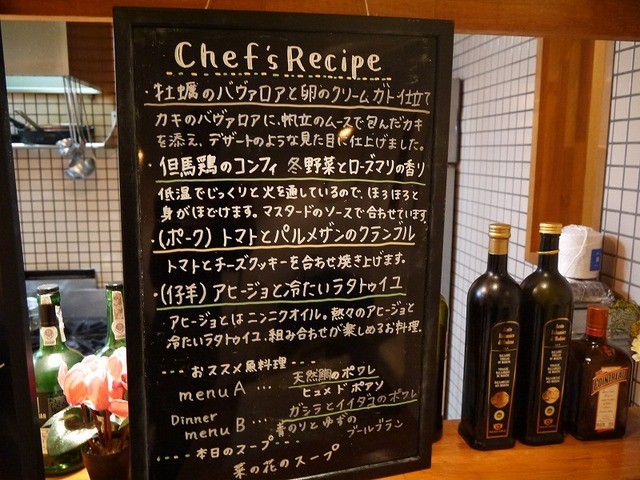 Chef's Recipe
・牡蠣のバヴァロアと卵のクリーム ガトー仕立て
カキのバヴァロアに、帆立のムースで包んだカキ
を添え、デザートのような見た目に仕上げました。
・但馬鶏のコンフィ 冬野菜とローズマリの香り
低温でじっくりと火を通しているので、ほろほろと
身がほどけます。マスタードのソースで合わせています。
・(ポーク) トマトとパルメザンのクランブル
トマトとチーズクッキーを合わせ焼き上げます。
・(仔羊) アヒージョと冷たいラタトゥイユ
アヒージョとはニンニクオイル。熱々のアヒージョと
冷たいラタトゥイユ、組み合わせが楽しめるお料理。
---おススメ魚料理---
menu A ... 天然鯛のポワレ
ヒュメ ド ポアソン
Dinner
menu B ... ガシラとイイダコのポワレ
青のりとゆずの
ブールブラン
----本日のスープ----
菜の花のスープ
COINTREAU